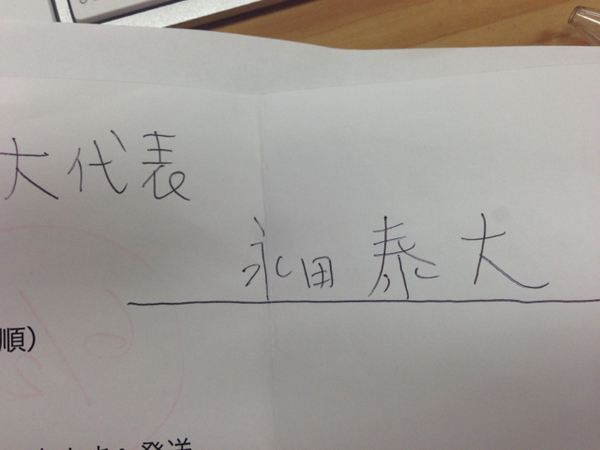 大代表
永田泰大
順)
発送